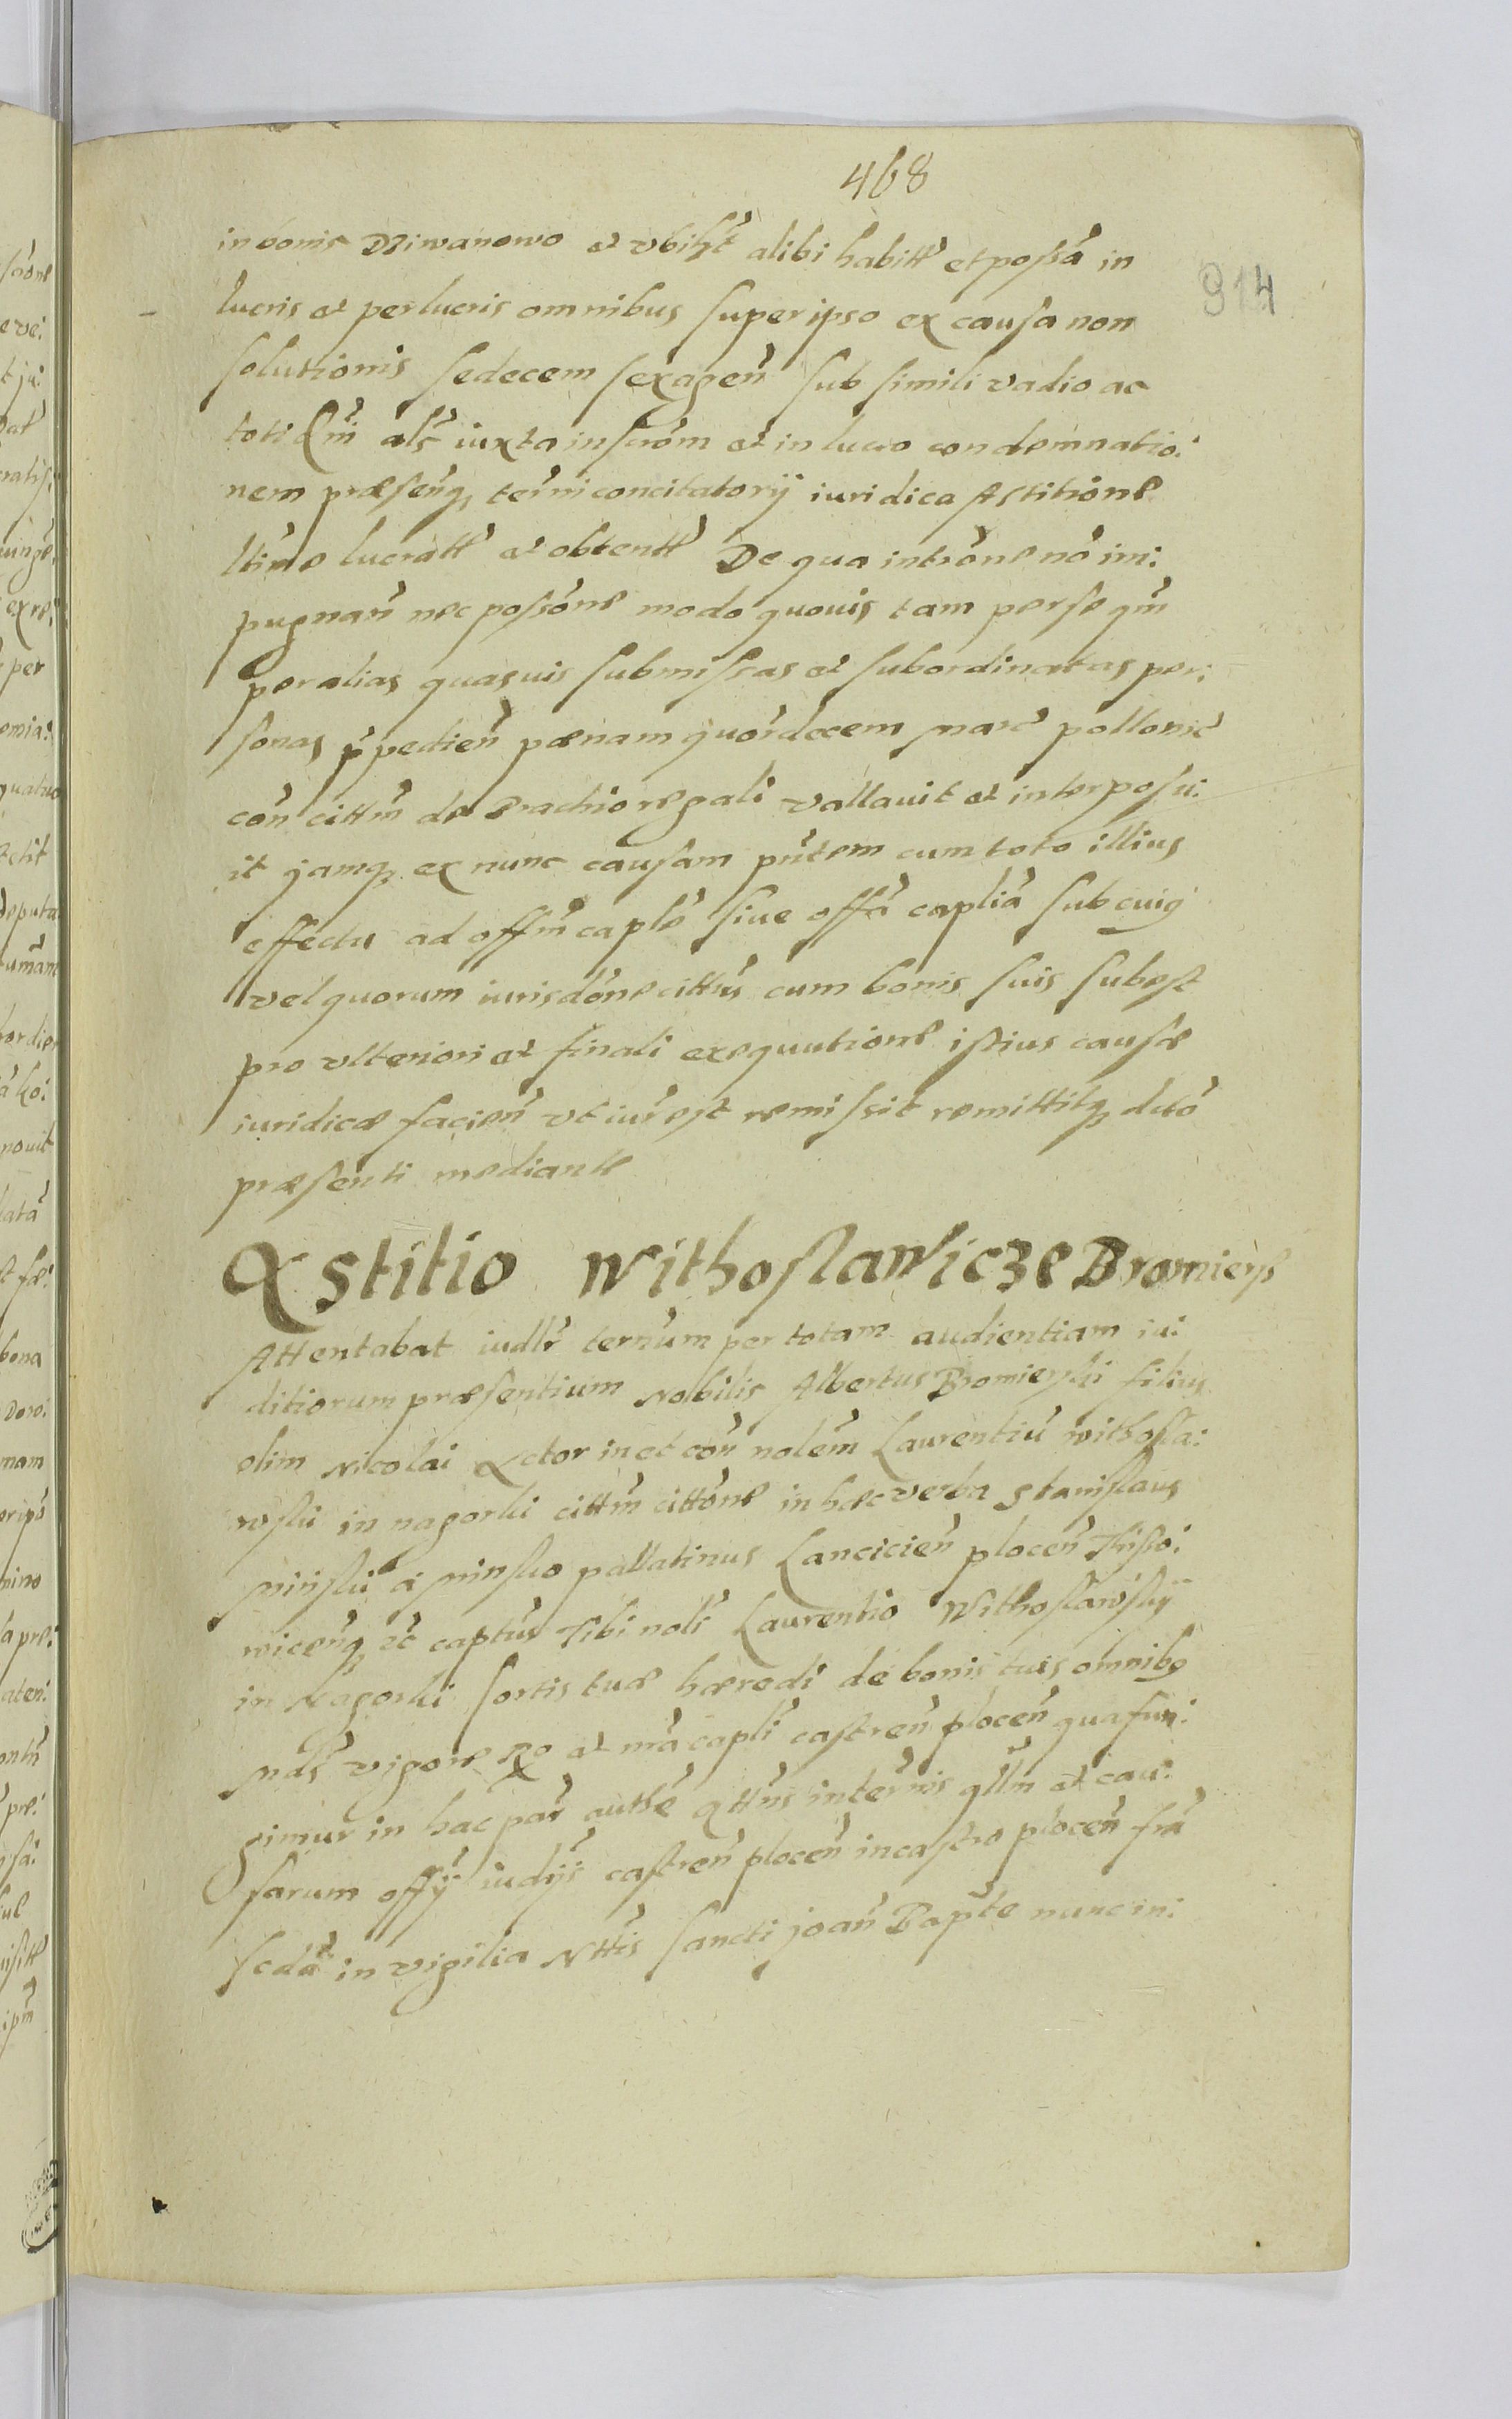 468
914
in bonis Dziwanowo et vbiłt alibi habitt et possa in
lucris et perlucris omnibus super ipso ex causa non
solutionis sedecem sexagen sub simili vadio ac
toti als iuxta inscrom et in lucro condemnatio:
nem præsenq termi concitatorÿ iuridica Astitione
ltime lucratt et obtentt De qua introne no im:
pugnan nec possone modo quouis tam per se qm
per alias quasuis submissas et subordinatas per:
sonas pedien pœnam quordecem marc pollonic
con cittm de Brachio regali vallauit et interposu:
it jamq ex nunc causam pntem cum toto illius
effectu ad offm caple siue offa caplia sub cuig
vel quorum iurisdone cittus cum bonis suis subest
pro vlteriori et finali exequutione istius causæ
iuridicæ facien vt iur est remissit remittitq dcto
præsenti mediante
Astitio Withoslawicze Bromierse
Attentabat iudlr ternum per totam audientiam iu:
ditiorum præsentium Nobilis Albertus Bromierski filius
olim Nicolai Actor in et con nolem Laurentiu withosla:
wski in nagorki cittm cittone in hæc verba Stanislaus
Minski a Minsko pallatinus Lancicien plocen
wicenq zc captus Tibi noli Laurentio Withoslawskÿ
in Nagorki sortis tuæ hæredi de bonis tuis omnibg
Mds vigore Ro et nra capli castren plocen qua fun:
gimur in hac par authe qttus in termis qllm et cau:
sarum offÿ iudÿs castren plocen in castro plocen fra
scda in vigilia Nttis sancti joan Bapte nunc in: